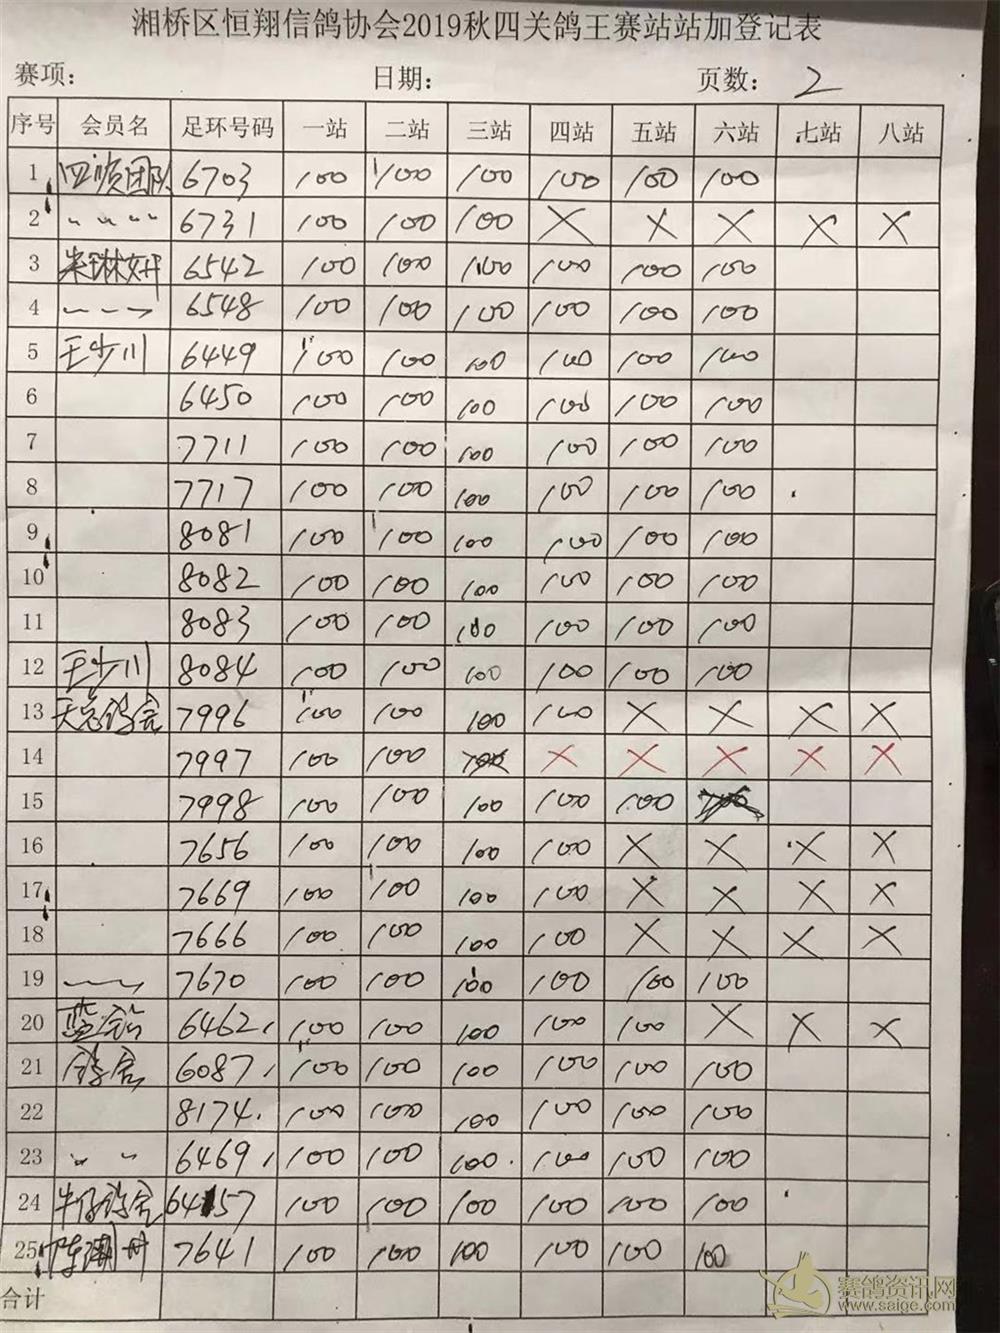 湘桥区恒翔信鸽协会2019秋四关鸽王赛站站加登记表
赛项： 日期： 页数： 2
序号 会员名 足环号码 一站 二站 三站 四站 五站 六站 七站 八站
1 团队 6703 100 100 100 100 100 100
2 〃 〃 〃 6731 100 100 100 X X X X X
3 6542 100 100 100 100 100 100
4 6548 100 100 100 100 100 100
5 王少川 6449 100 100 100 100 100 100
6 6450 100 100 100 100 100 100
7 7711 100 100 100 100 100 100
8 7717 100 100 100 100 100 100
9 8081 100 100 100 100 100 100
10 8082 100 100 100 100 100 100
11 8083 100 100 100 100 100 100
12 王少川 8084 100 100 100 100 100 100
13 鸽舍 7996 100 100 100 100 X X X X
14 7997 100 100 X X X X X
15 7998 100 100 100 100 100
16 7656 100 100 100 100 X X X X
17 7669 100 100 100 100 X X X X
18 7666 100 100 100 100 X X X X
19 7670 100 100 100 100 100 100
20 6462 100 100 100 100 100 X X X
21 鸽舍 6087 100 100 100 100 100 100
22 8174 100 100 100 100 100 100
23 〃 〃 6469 100 100 100 100 100 100
24 牛仔鸽舍 6457 100 100 100 100 100 100
25 陈潮州 7641 100 100 100 100 100 100
合计
赛鸽资讯网
www.saige.com